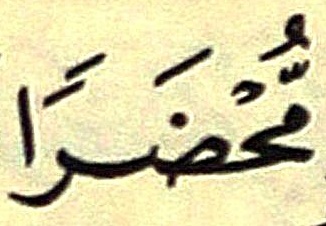 مُّحْضَرًا